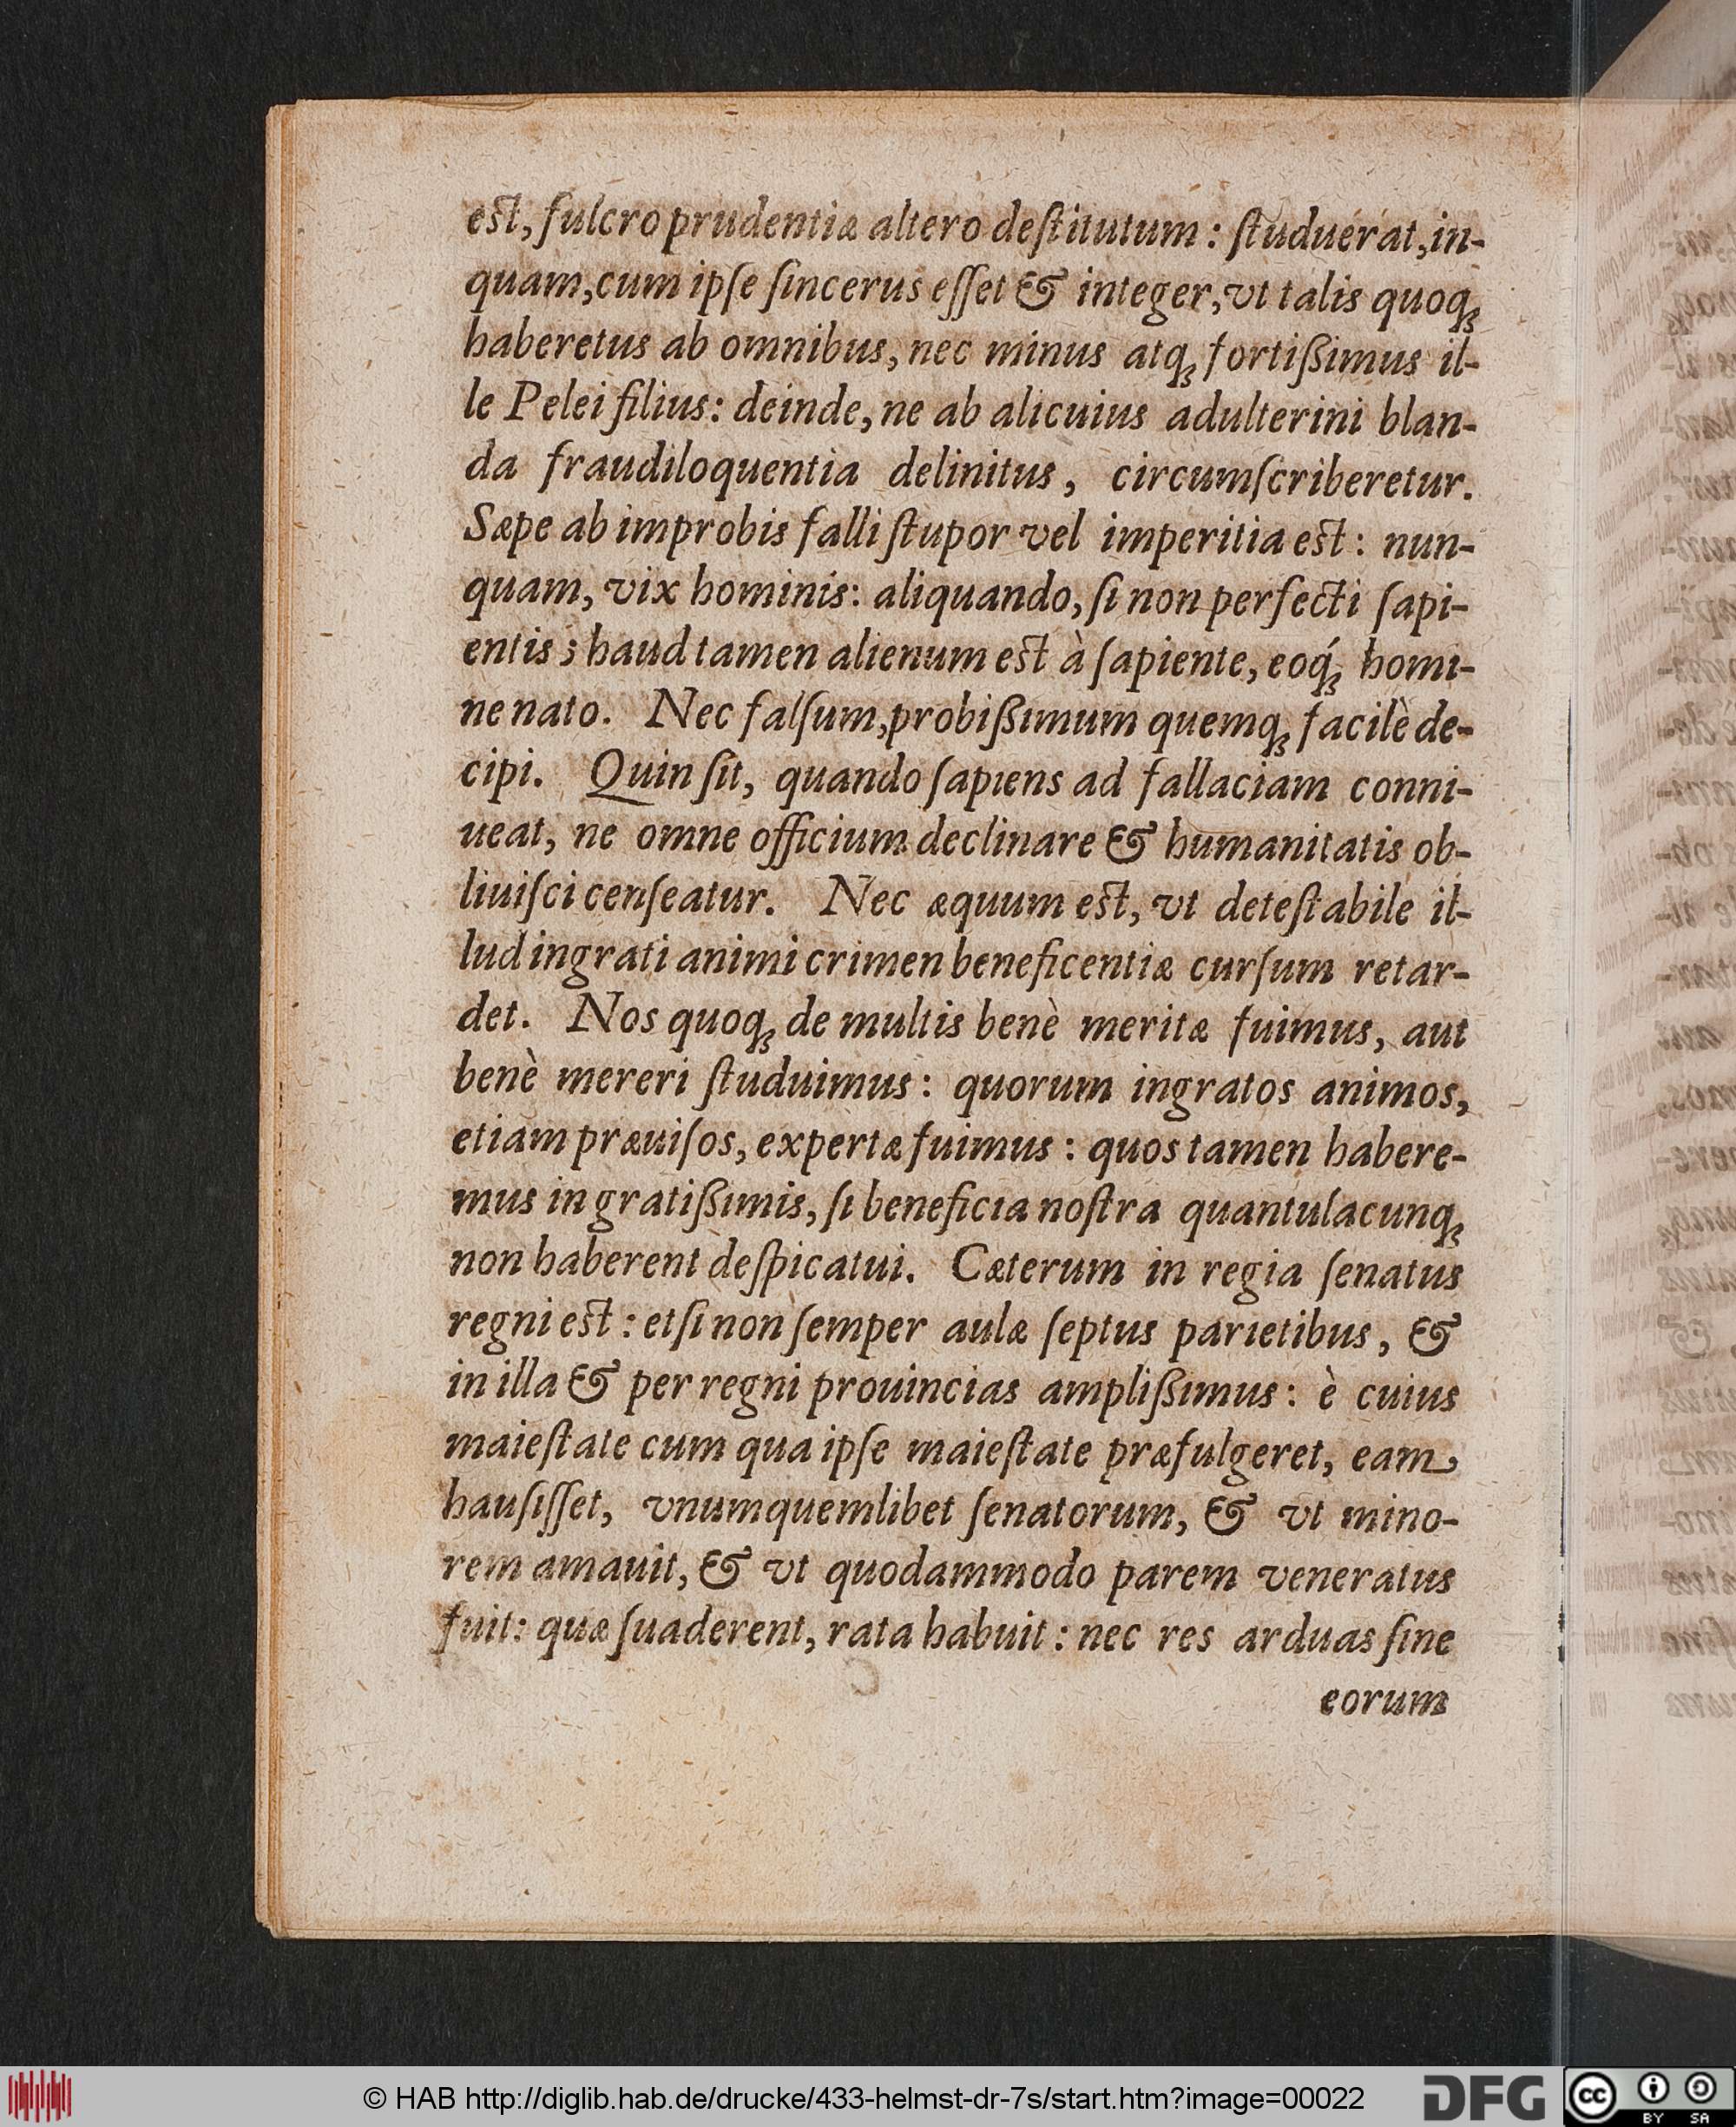 est, fulcro prudentiæ altero deſtitutum : ſtuduerat, in-
quam, cum ipſe ſincerus eſſet & integer, vt talis quoq́ꝫ
haberetus ab omnibus, nec minus atqꝫ fortißimus il-
le Pelei filius: deinde, ne ab alicuius adulterini blan-
da fraudiloquentia delinitus, circumſcriberetur.
Sæpe ab improbis falli ſtupor vel imperitia est: nun-
quam, vix hominis: aliquando, ſi non perfecti ſapi-
entis; haud tamen alienum est à ſapiente, eoq́ꝫ homi-
ne nato. Nec falſum, probißimum quemqꝫ facilè de-
cipi. Quin ſit, quando ſapiens ad fallaciam conni-
ueat, ne omne officium declinare & humanitatis ob-
liuiſci cenſeatur. Nec æquum est, vt deteſtabile il-
lud ingrati animi crimen beneficentiæ curſum retar-
det. Nos quoqꝫ de multis benè meritæ fuimus, aut
benè mereri ſtuduimus: quorum ingratos animos,
etiam præuiſos, expertæ fuimus: quos tamen habere-
mus in gratißimis, ſi beneficia noſtra quantulacunqꝫ
non haberent deſpicatui. Cæterum in regia ſenatus
regni est: etſi non ſemper aulæ ſeptus parietibus, &
in illa & per regni prouincias amplißimus: è cuius
maieſtate cum qua ipſe maieſtate præfulgeret, eam
hauſiſſet, vnumquemlibet ſenatorum, & vt mino-
rem amauit, & vt quodammodo parem veneratus
fuit: quæ ſuaderent, rata habuit: nec res arduas ſine
eorum
© HAB http://diglib.hab.de/drucke/433-helmst-dr-7s/start.htm?image=00022
DFG
cc BY SA